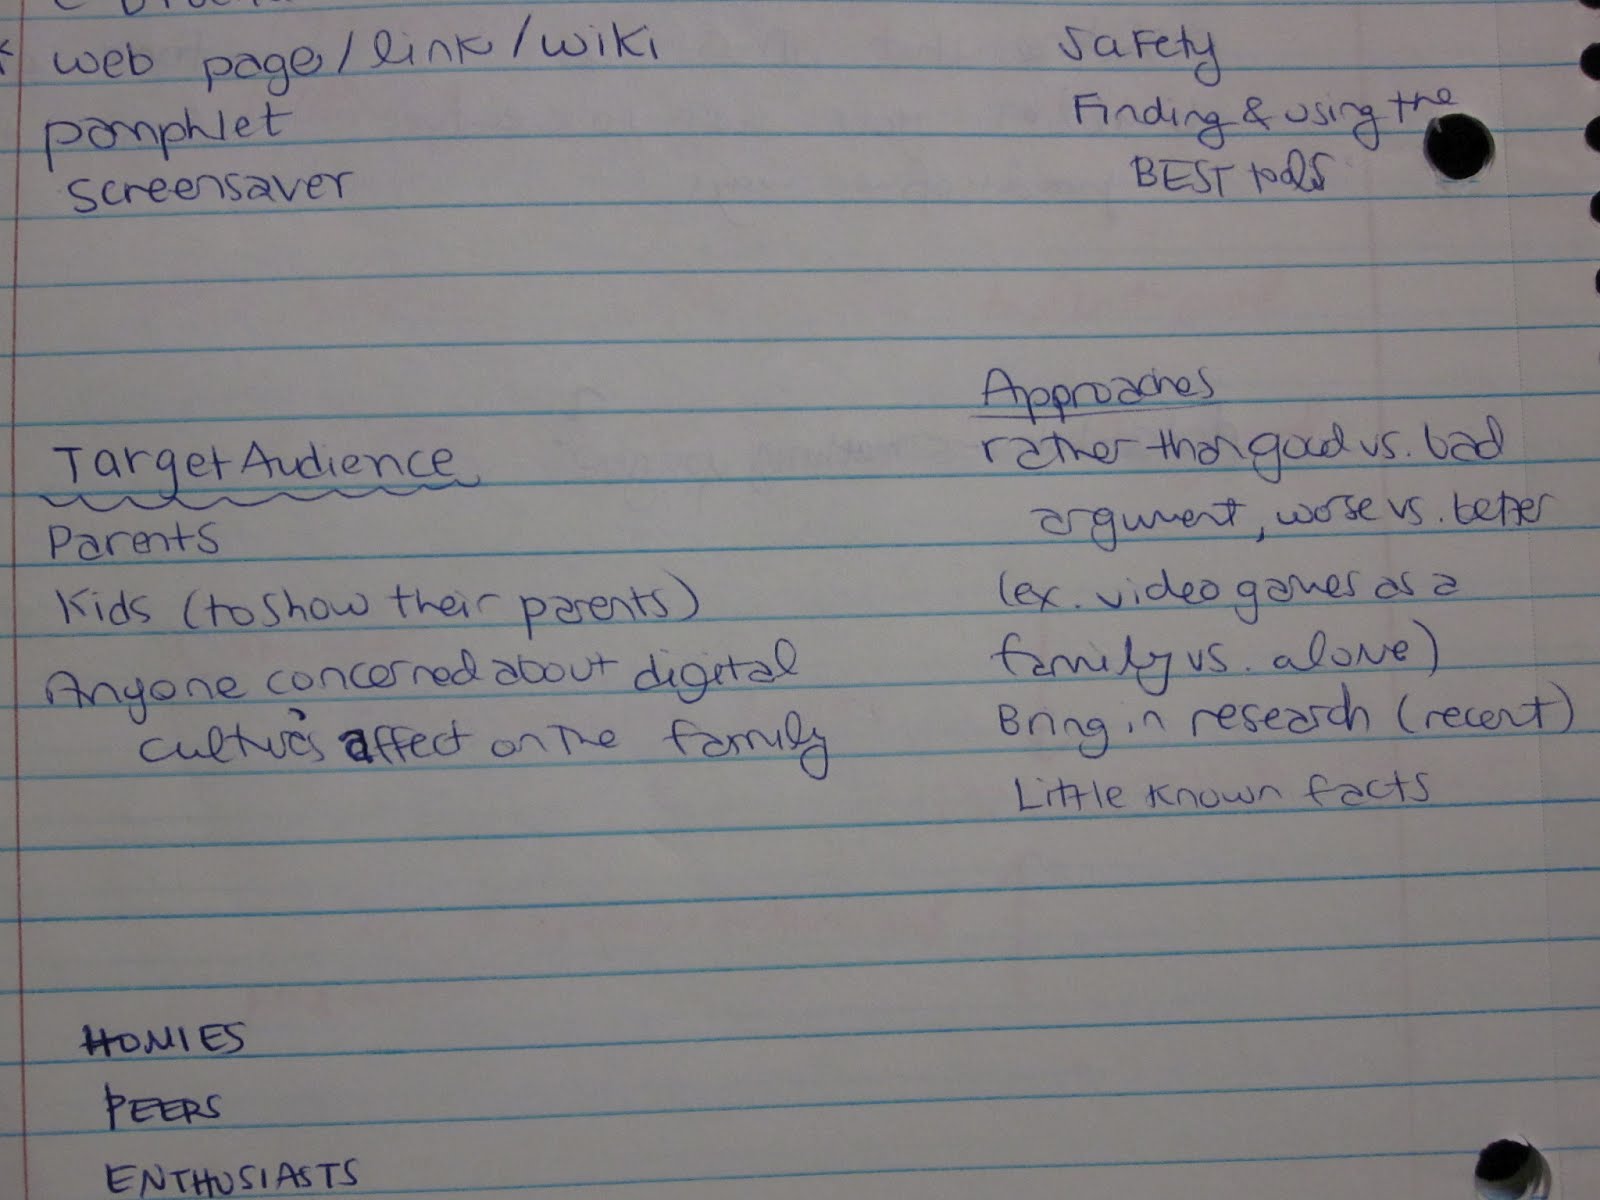 web page/link/wiki
pamphlet
screensaver
Safety
Finding & using the
BEST tools
Target Audience
Parents
Kids (to show their parents)
Anyone concerned about digital
culture's affect on the family
Approaches
rather than good vs. bad
argument, worse vs. better
(ex. video games as a
family vs. alone)
Bring in research (recent)
Little known facts
HOMIES
PEERS
ENTHUSIASTS